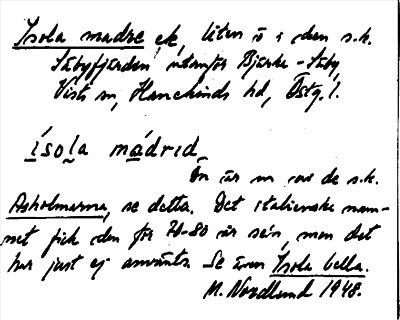 Isola madre ek, liten ö i den s.k.
Säbyfjärden utanför Bjärka-Säby,
Vists sn, Hanekinds hd, Östg. l.
ísola mádrɪd
Ön är en av de s.k.
Asholmarna, se detta. Det italienska nam-
net fick den för 70-80 år sen, men det
har just ej använts. Se även Isola bella.
M. Nordlund 1948.